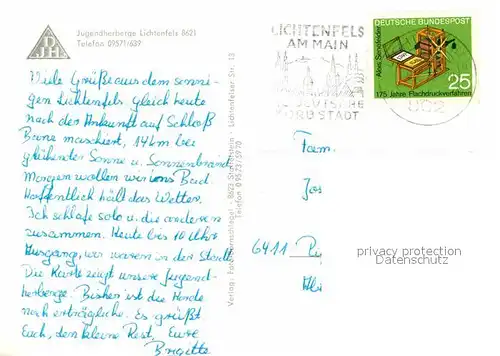 Jugendherberge Lichtenfels 8621
Telefon 09571/639
DJH
LICHTENFELS
AM MAIN
DEUTSCHE
KORBSTADT
862
DEUTSCHE BUNDESPOST
Alois Senefelder
25
175 Jahre Flachdruckverfahren
Viele Grüße aus dem sonni-
gen Lichtenfels. Gleich heute
nach der Ankunft auf Schloß
Banz marschiert, 14 km bei
glühender Sonne u. Sonnenbrand
Morgen wollen wir ins Bad.
Hoffentlich hält das Wetter.
Ich schlafe solo u. die anderen
zusammen. Heute bis 10 Uhr
Ausgang, wir waren in der Stadt.
Die Karte zeigt unsere Jugend-
herberge. Bisher ist die Horde
noch erträglich. Es grüßt
Euch, dem kleine Rest, Eure
Brigitte
Verlag: Foto
8623 Staffelstein - Lichtenfelser Str. 13
Telefon 09573/5970
Fam.
Jos
6411
privacy protection
Datenschutz